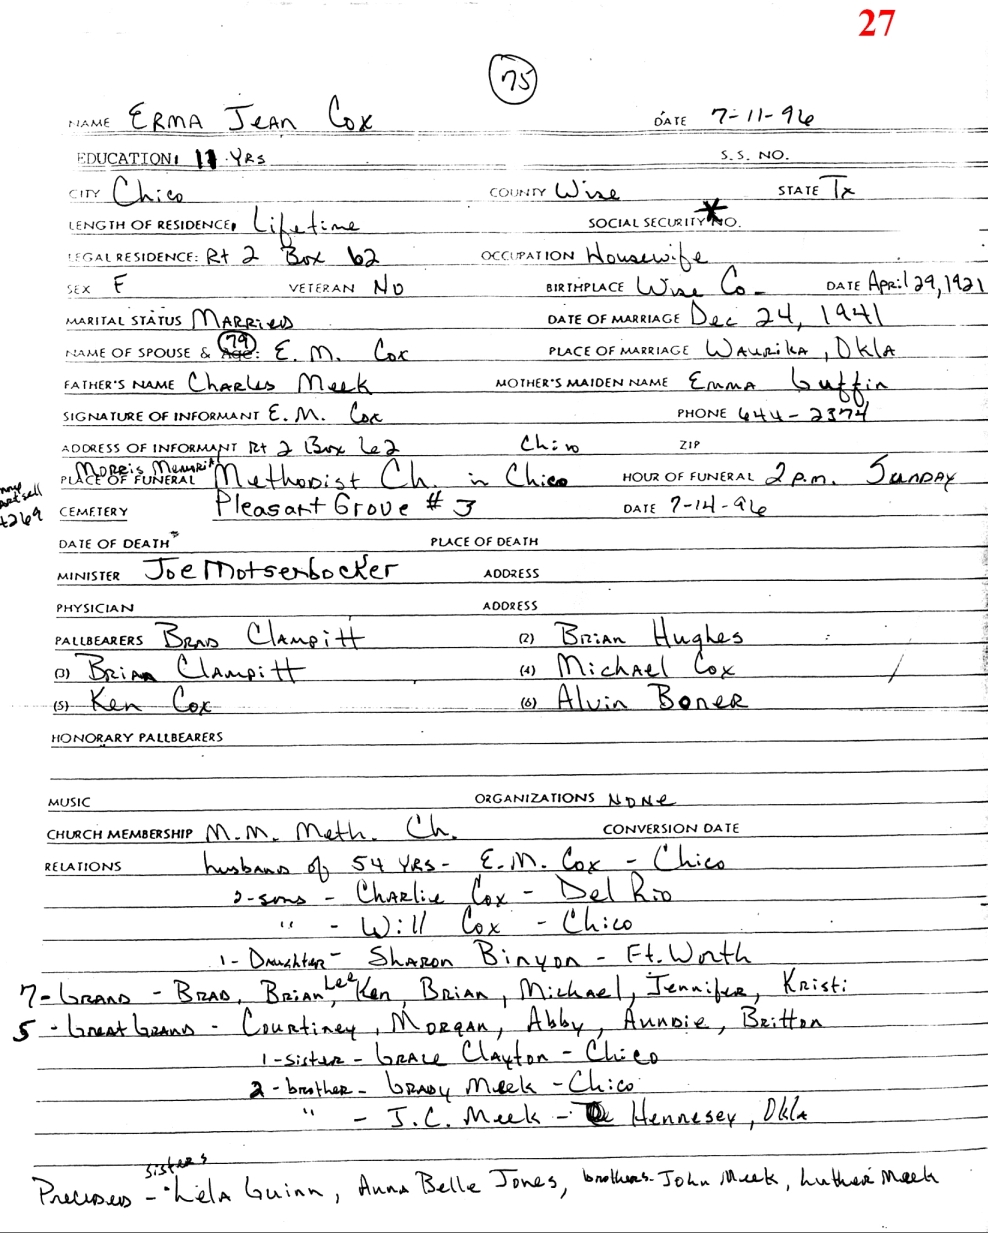 27
75
NAME ERMA JEAN Cox DATE 7-11-96
EDUCATION: 11 YRS S.S. NO.
CITY Chico COUNTY Wise STATE Tx
LENGTH OF RESIDENCE: Lifetime SOCIAL SECURITY NO.
LEGAL RESIDENCE: Rt 2 Box 62 OCCUPATION Housewife
SEX F VETERAN NO BIRTHPLACE Wise Co. DATE April 29, 1921
MARITAL STATUS MARRIED DATE OF MARRIAGE Dec 24, 1941
NAME OF SPOUSE & Age: 79 E. M. Cox PLACE OF MARRIAGE WAURIKA, OKLA
FATHER'S NAME Charles Meek MOTHER'S MAIDEN NAME Emma Guffin
SIGNATURE OF INFORMANT E. M. Cox PHONE 644-2374
ADDRESS OF INFORMANT Rt 2 Box 62 Chico ZIP
Morris Memorial
PLACE OF FUNERAL Methodist Ch. in Chico HOUR OF FUNERAL 2 p.m. SUNDAY
CEMETERY Pleasant Grove # 3 DATE 7-14-96
DATE OF DEATH PLACE OF DEATH
MINISTER Joe Motserbocker ADDRESS
PHYSICIAN ADDRESS
PALLBEARERS BRAD Clampitt (2) BRIAN Hughes
(3) BRIAN Clampitt (4) Michael Cox
(5) Ken Cox (6) Alvin Boner
HONORARY PALLBEARERS
MUSIC ORGANIZATIONS NONE
CHURCH MEMBERSHIP M.M. Meth. Ch. CONVERSION DATE
RELATIONS husband of 54 YRS - E.M. Cox - Chico
2-sons - Charlie Cox - Del Rio
" - Will Cox - Chico
1- Daughter - Sharon Binyon - Ft. Worth
7-GRAND - BRAD, BRIAN Lee, Ken, Brian, Michael, Jennifer, Kristi
5 - Great Grand - Courtiney, Morgan, Abby, Aundie, Britton
1-sister - GRACE Clayton - Chico
2 - brother - GRADY Meek - Chico
" - J.C. Meek - Hennesey, Okla
sisters
Preceded - Lela Guinn, Anna Belle Jones, brothers- John Meek, Luther Meek